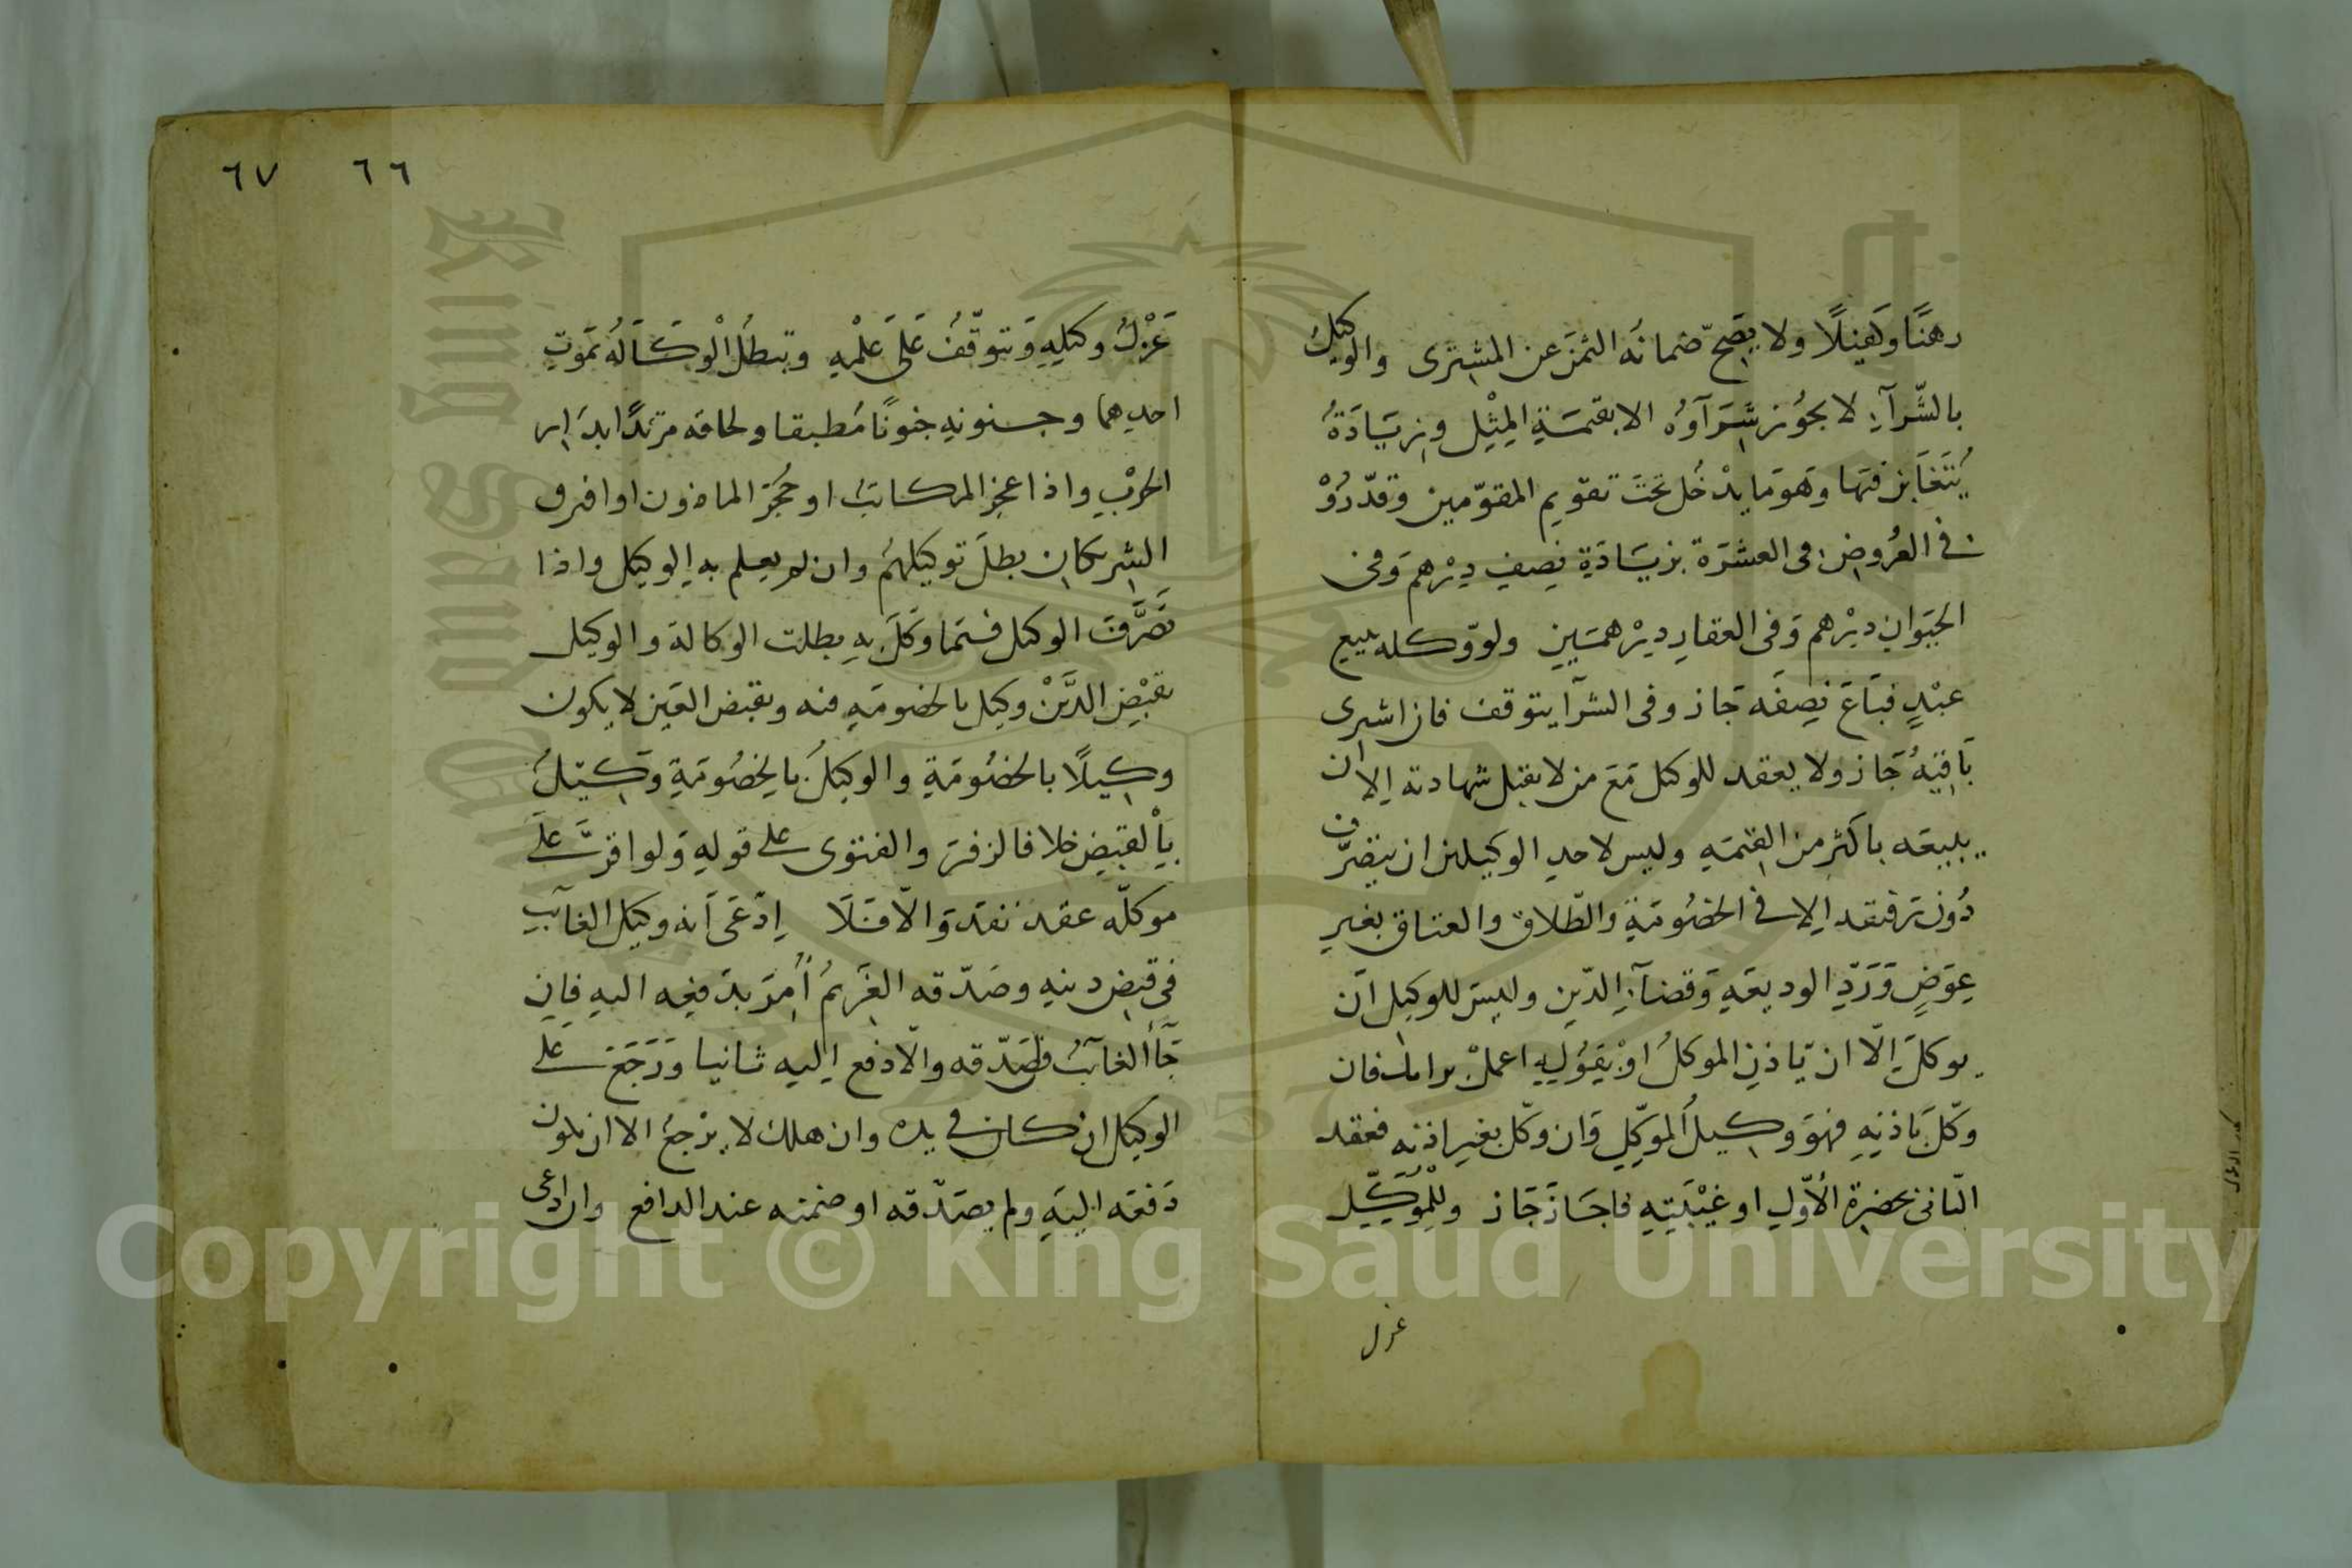 ٦٧ ٦٦
رهنًا وكفيلًا ولا يصحّ ضمانُه الثمنَ عن المشترى والوكيلُ
بالشّرآءِ لا يجوُز شَرَآؤهُ الا بقيمَةِ المِثْلِ وزيَادَةُ
يُتَغَابَن فيَها وَهوَ مَا يدْخُل تحَتَ تقويم المقوّمين وقدّروُ
نه فى العُروضِ فى العشرَة بزيَادَةِ نِصفِ دِرْهم وَفى
الحيَوانِ دِرْهم وَفى العقارِ دِرْهمَينِ ولو وّكله ببيع
عبْدٍ فبَاعَ نِصفَه جَاز وفى الشرآ يتوقف فان اشترى
بَاقيَهُ جَاز ولا يعقد الوكيل مَعَ من لا يقبل شهادته إلا ان
يبيعَه باكثر من القيمَه وليس لاحدِ الوكيلين ان يتصرّف
دُون رَفيقه إلا فى الخصُومَةِ والطّلاق والعتاق بغيرِ
عِوَضٍ وَرَدِّ الوديعَهِ وَقضآءِ الدّينِ وليسَ للوكيل انَ
يوكلَ إلّا ان يَاذنِ الموكلُ اوْ يَقوُلِ اعملْ برايك فان
وكّلَ بَاذنِهِ فهوَ وكيلُ الموكِّلِ وَان وكّل بغيرِ اذنهِ فعقد
الثانى بحضرة الأوّلِ او غيْبَتِهِ فاجَازَ جَاز وللْمُوكِّيل
عزل
عَزْلُ وكيلِهِ وَيتوقّفُ عَلىَ عَلْمهِ وتبطلُ الْوكَالَهُ بمَوتِ
احدِهما وجنونهِ جنونًا مُطبقا ولحاقه مرتدًّا بدَار
الحرْبِ واذا عجز المكاتبُ او حُجِرَ الماذون او افترق
الشريكانِ بطلَ توكيلهُم وان لم يعلم به الوكيل واذا
تَصَرَّفَ الموكل فيمَا وكّلَ بهِ بطلت الوكالة والوكيل
بقبْضِ الدَّيْن وكيل بالخصومَهِ فيه وبقبض العَين لا يكون
وكيلًا بالخصُومَةِ والوكيلُ بالخصُومَةِ وَكيلُ
بِالْقبضِ خلافا لزفرَ والفتوى على قولهِ وَلو اقرَّ علىَ
موكلّه عند نفذ وَالّا فلَا إدّعَى أنه وكيل الغآئبِ
فى قبض دينهِ وصَدّقه الغَريمُ أُمِرَ بدَفعِه اليهِ فإن
جَآءَ الغآئبُ فصَدّقه والّا دفع إليه ثانيا وَرَجَعَ علىَ
الوكيل ان كان فى يده وان هلك لا يرْجعُ الا ان يكون
دَفعَه اليَهِ ولم يصَدّقه او ضمنه عند الدافع وان ادعى
Copyright © King Saud University